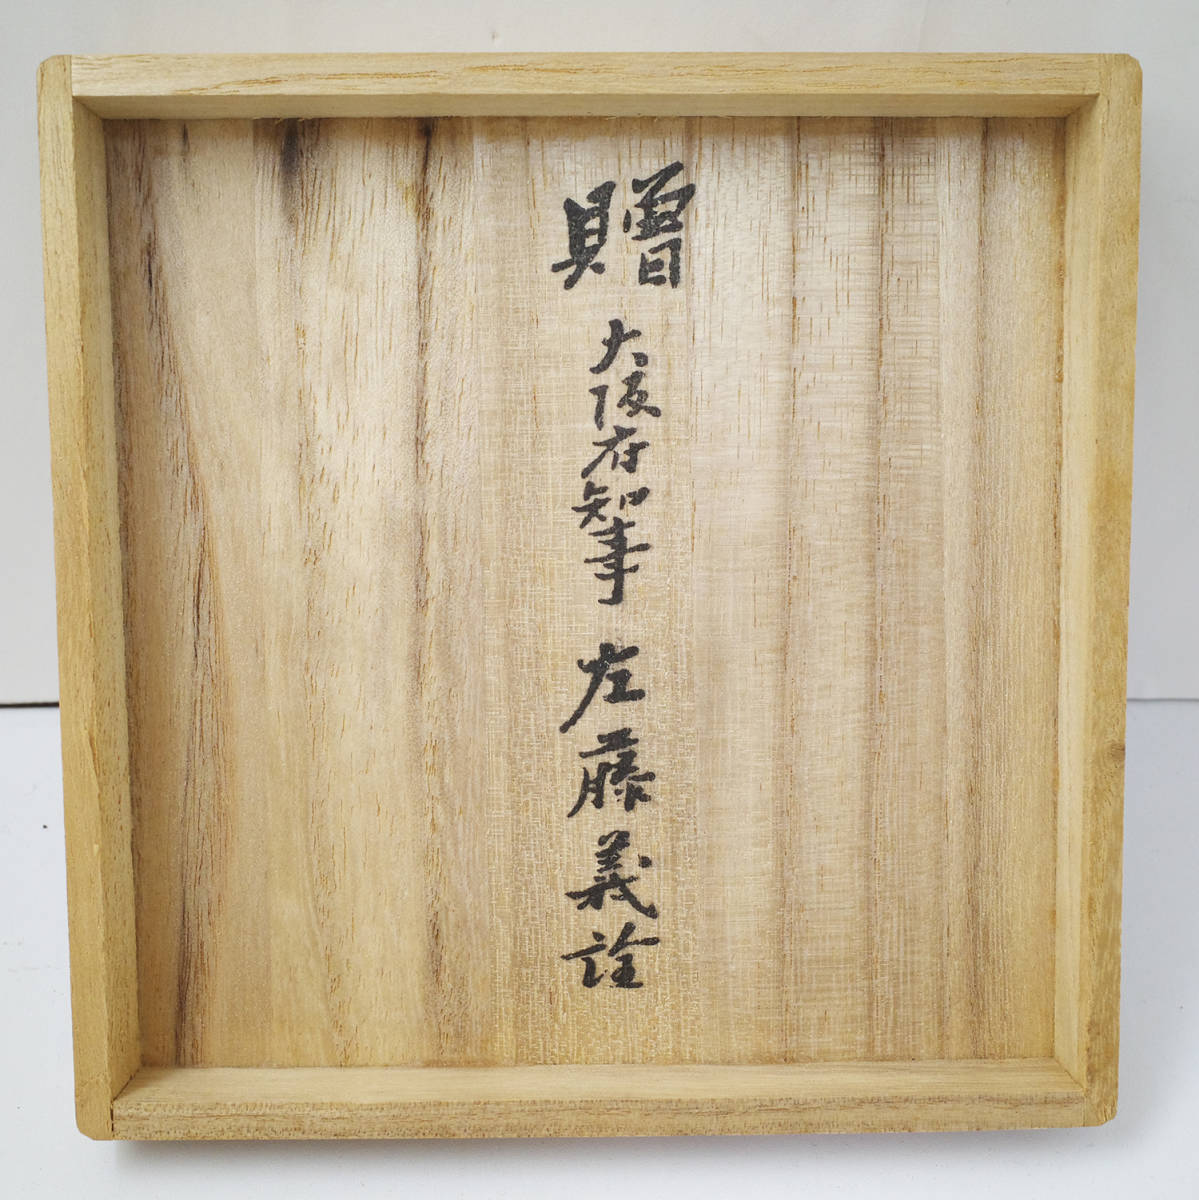 贈 大阪府知事 左藤義詮